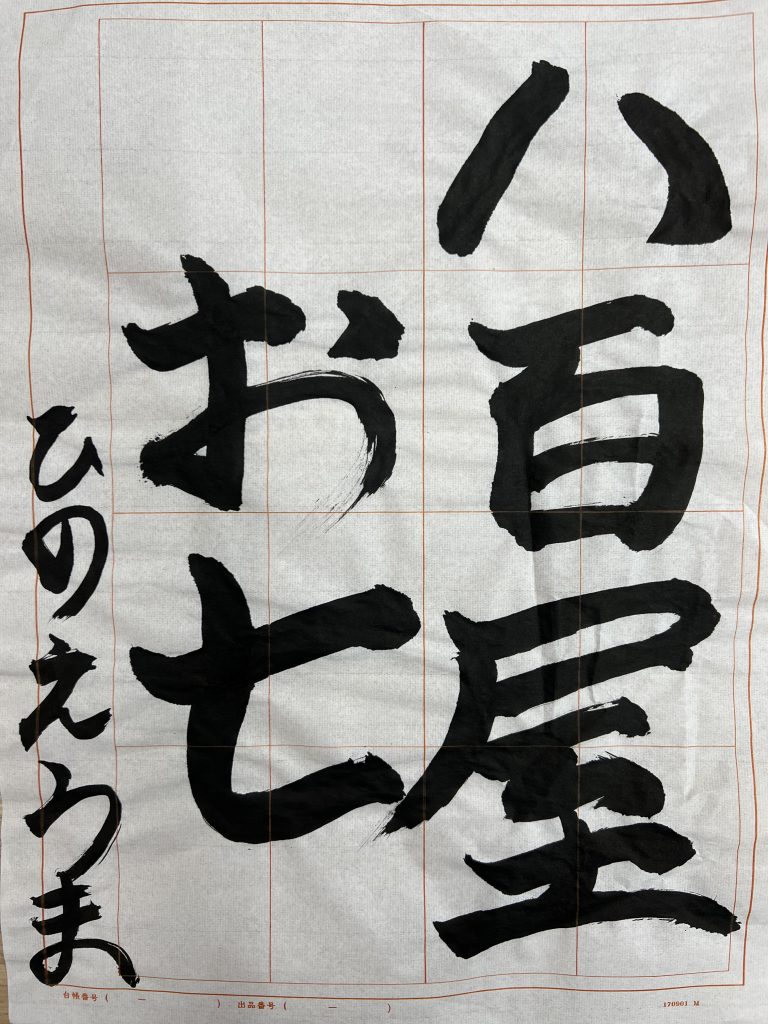 八百屋
お七
ひのえうま
台帳番号 ( － ) 出品番号 ( － ) 170901 M